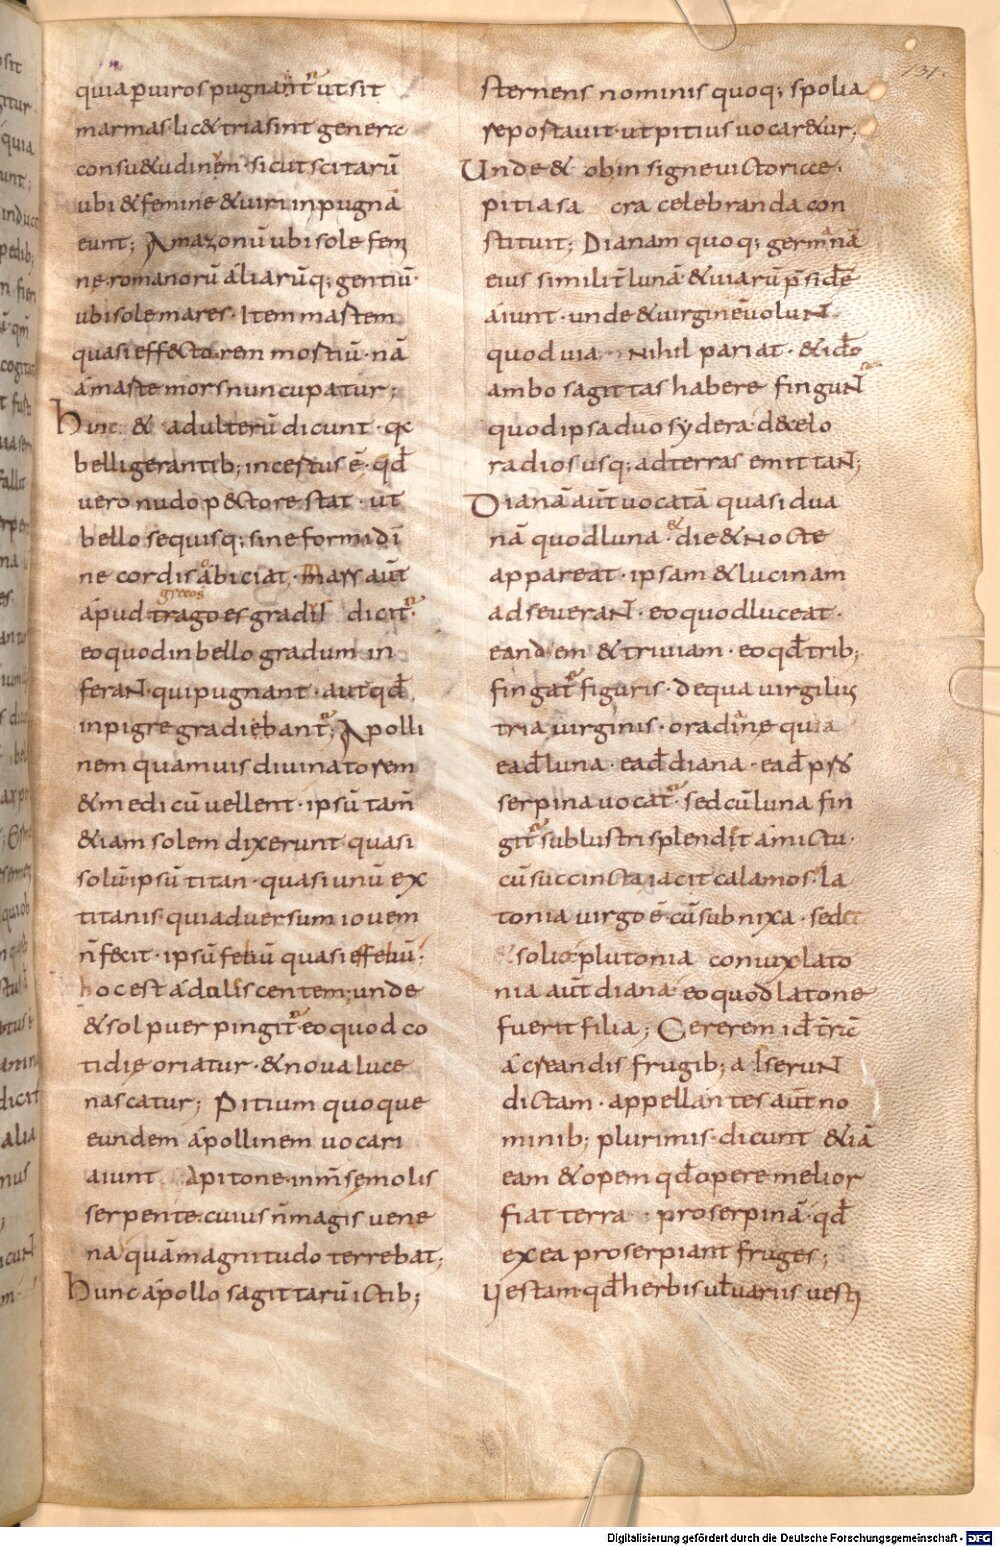 131.
quia p uiros pugnant᷑ ut sit
mar mas lic& tria sint genera
consu&udinem· sicut scitarū
ubi & femine & uiri in pugnā
eunt; Amazonū ubi sole femi
ne· romanorū aliarūq; gentiū·
ubi sole mares· Item mastem
quasi effectorem mostiū· nā
a maste mors nuncupatur;
Hunc & adulterū dicunt· q
belligerantib; incestus ē· qđ
uero nudo pectore stat· ut
bello se quisq; sine formidi
ne cordis abiciat· Mars aūt
greos
apud tragoes gradis dicit᷑·
eo quod in bello gradum in
feraN· qui pugnant· aut qđ
inpigre gradiebant᷑; Apolli
nem quamuis diuinatorem
& medicū uellent· ipsū tam̄
&iam solem dixerunt· quasi
solū· ipsū titan· quasi unū ex
titanis· qui aduersum iouem
n̄ fecit· ipsū febū quasi effebū·
hoc est adoliscentem; unde
& sol puer pingit᷑· eo quod co
tidie oriatur· & noua luce
nascatur; Pitium quoque
eundem apollinem uocari
aiunt Apitone inm̄se molis
serpente· cuius n̄ magis uene
na quam magnitudo terrebat;
Hunc apollo sagittarū ictib;
sternens nominis quoq; spolia
repostauit· ut pitius uocar&ur;
Unde & ob insigne uictorice·
pitia sa cra celebranda con
stituit; Dianam quoq; germanā
eius similit̄ lunā· & uiarū p̄sidē
aiunt· unde & uirginē uoluN·
quod uia Nihil pariat· & ido
ambo sagittas habere finguN᷑
quod ipsa duo sydera de celo
radios usq; ad terras emittaN;
Dianā aūt uocatā quasi dua
nā quod luna· & die & Nocte
appareat· ipsam & lucinam
adseueraN· eo quod luceat·
eandem & triuiam· eo qđ trib;
fingat᷑ figuris· De qua uirgilius
tria uirginis· ora dine quia
eađ luna· eađ diana· eađ p̄s&
serpina uocat᷑· sed cū luna fin
git᷑ sublustri splendit amictu·
cū succincta iacit calamos· la
tonia uirgo ē· cū subnixa· sede
solio· plutonia coniux lato
nia aūt diana· eo quod latone
fuerit filia; Cererem id t̄rā
a creandis frugib; adseruN
dictam· appellantes aūt no
minib; plurimis· dicunt &iā
eam & opem qđ opere melior
fiat terra· proserpinā· qđ
ex ea proserpiant fruges;
Uestam· qđ herbis uł uariis uesti
Digitalisierung gefördert durch die Deutsche Forschungsgemeinschaft - DFG